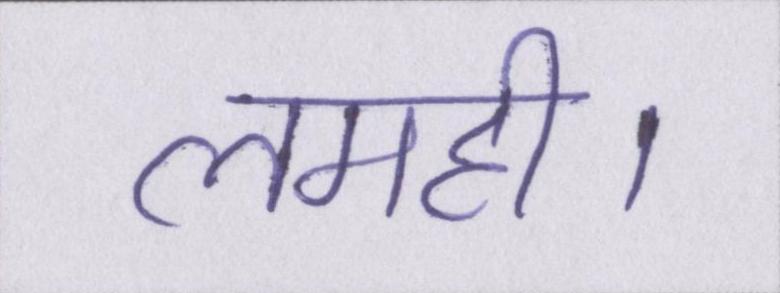 लमही।